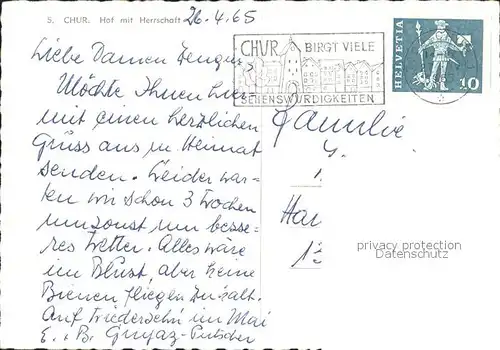 5. CHUR. Hof mit Herrschaft
26.4.65
CHUR BIRGT VIELE
SEHENSWÜRDIGKEITEN
HELVETIA
10
Liebe Damen
Möchte Ihnen hier-
mit einen herzlichen
Gruss aus m. Heimat
senden. Leider war-
ten wir schon 3 Wochen
umsonst um besse-
res Wetter. Alles wäre
im Blust, aber keine
Bienen fliegen. Zu kalt.
Auf Wiedersehn im Mai
E. + B.
Familie
Har
privacy protection
Datenschutz